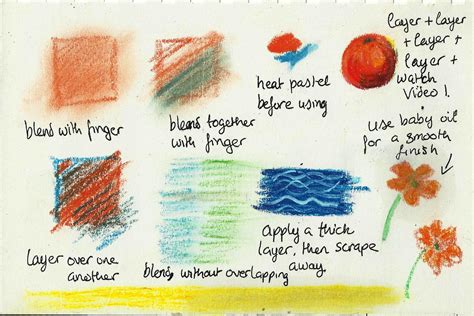 blend with finger
blends together
with finger
heat pastel
before using
layer + layer
+ layer +
layer +
watch
Video 1.
use baby oil
for a smooth
finish
layer over one
another
blends without overlapping
apply a thick
layer, then scrape
away.